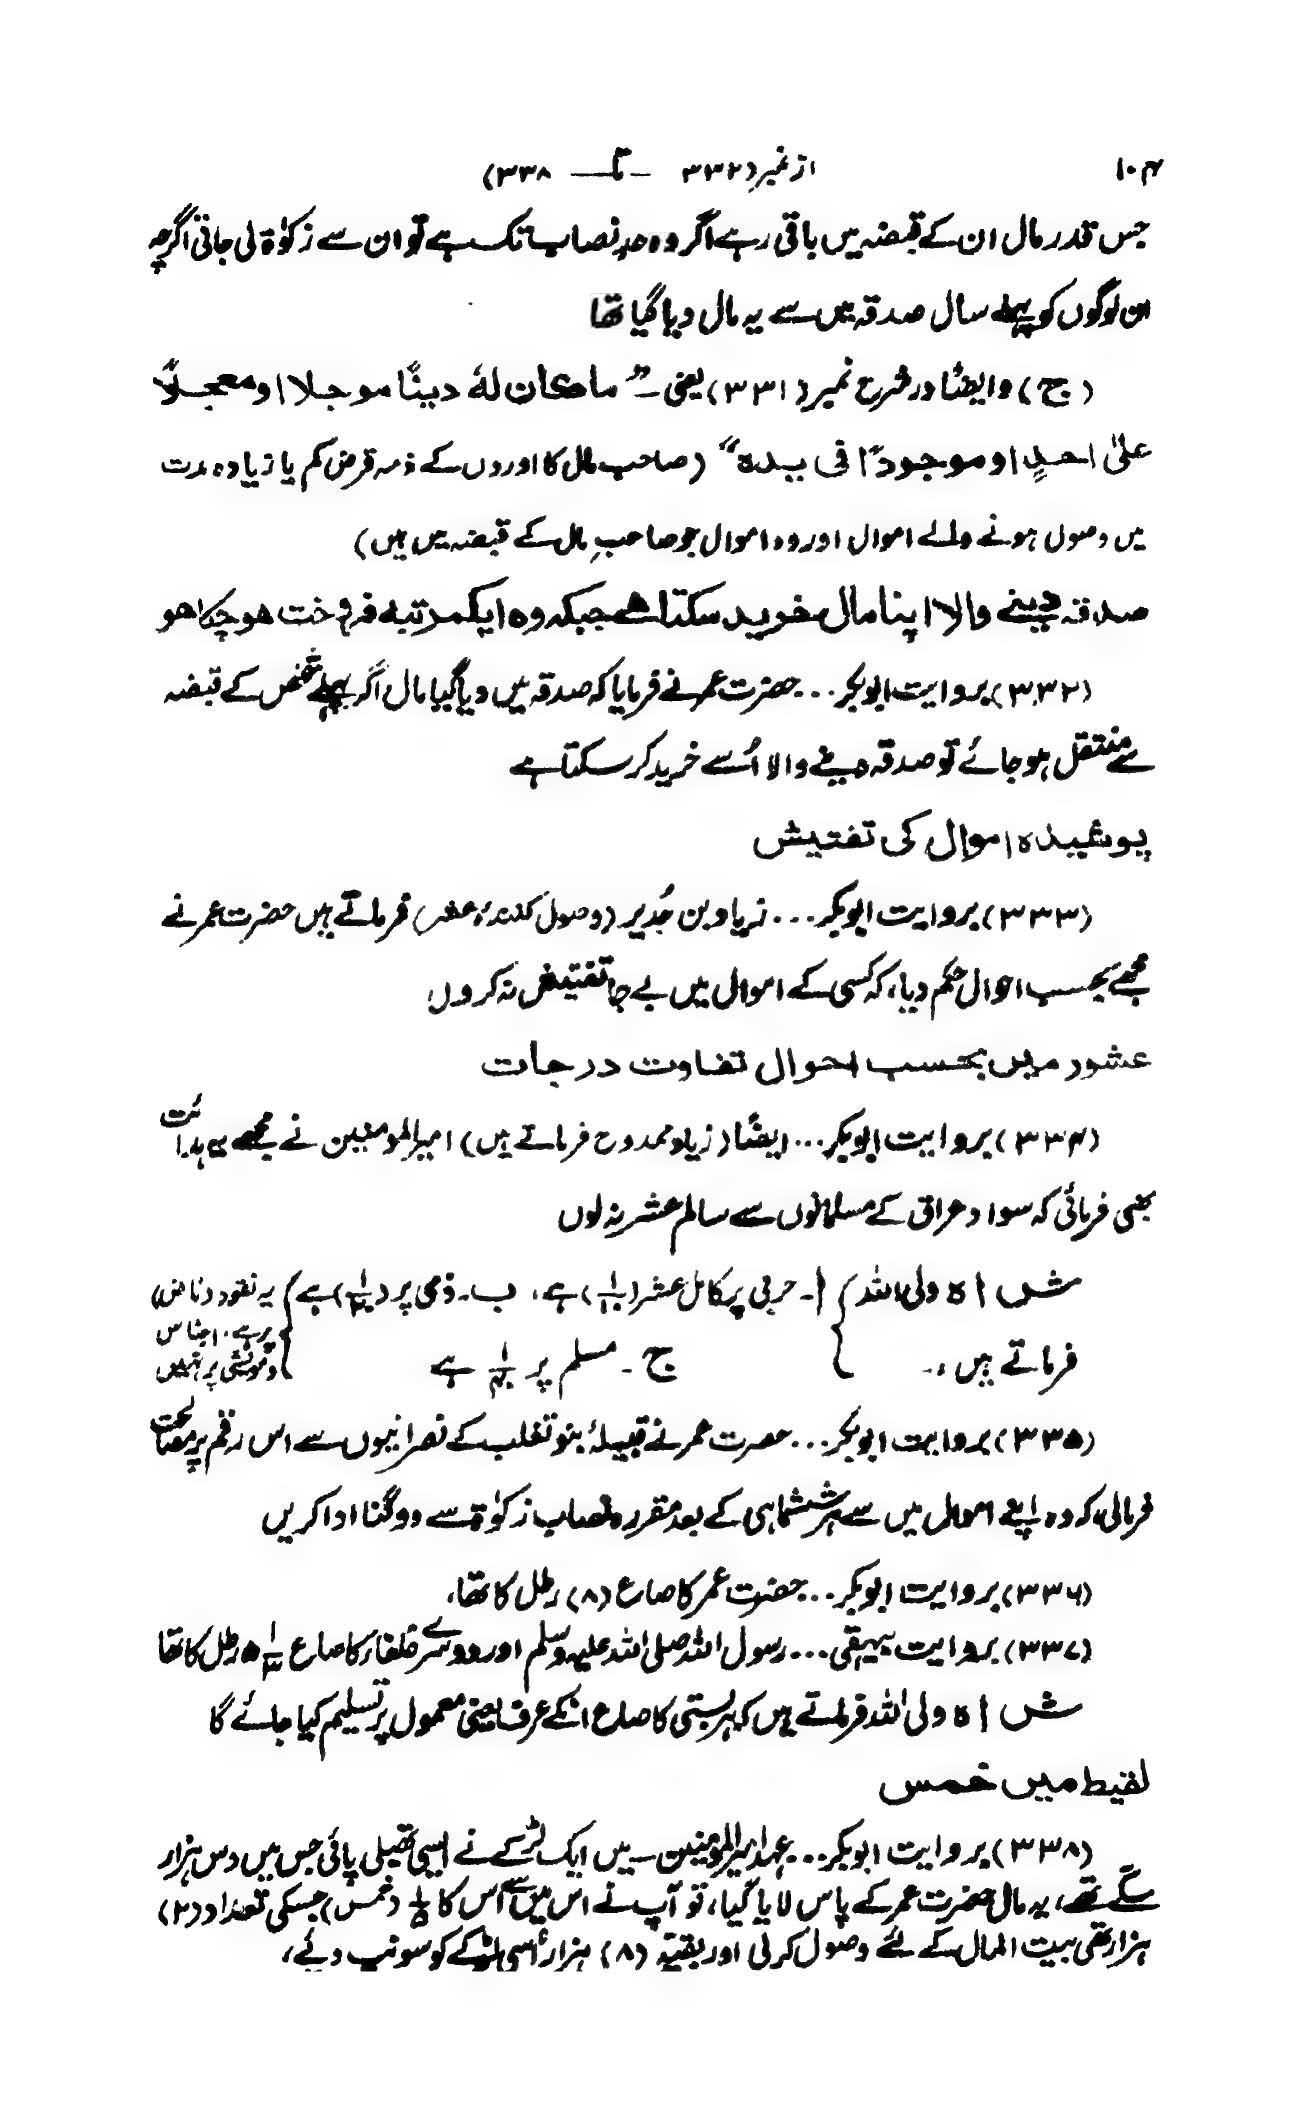 ۱۰۴ از نمبر (۳۳۲ — تا — ۳۳۸)
جس قدر مال ان کے قبضہ میں باقی رہے اگر وہ حد نصاب تک ہے تو ان سے زکوٰۃ لی جاتی اگرچہ
ان لوگوں کو پہلے سال صدقہ میں سے یہ مال دیا گیا تھا
(ج) و ایضًا در شرح نمبر (۳۳۱) یعنی — ”ما کان لهٗ دینًا موجلا او معجلًا
علیٰ احدٍ او موجودًا فی یدہ“ (صاحب مال کا اوروں کے ذمہ قرض کم یا زیادہ مدت
میں وصول ہونے والے اموال اور وہ اموال جو صاحبِ مال کے قبضہ میں ہیں)
صدقہ دینے والا اپنا مال خرید سکتا ہے جبکہ وہ ایکمرتبہ فروخت ہو چکا ہو
(۳۳۲) بروایت ابوبکر... حضرت عمر نے فرمایا کہ صدقہ میں دیا گیا مال اگر پہلے شخص کے قبضہ
سے منتقل ہو جائے تو صدقہ دینے والا اُسے خرید کر سکتا ہے
پوشیدہ اموال کی تفتیش
(۳۳۳) بروایت ابوبکر... زیاد بن حُدیر (وصول کنندۂ عشر) فرماتے ہیں حضرت عمر نے
مجھے بحسب احوال حکم دیا، کہ کسی کے اموال میں بے جا تفتیش نہ کروں
عشور میں بحسب احوال تفاوت درجات
(۳۳۴) بروایت ابوبکر... ایضًا (زیاد ممدوح فرماتے ہیں) امیرالمومنین نے مجھے یہ ہدائت
بھی فرمائی کہ سواد عراق کے مسلمانوں سے سالم عشر نہ لوں
شاہ ولی اللہ } ا۔ حربی پر کامل عشر (۱/۱۰) ہے، ب۔ ذمی پر (۱/۲۰) ہے } یہ نقود (ناض)
پر ہے، اجناس
فرماتے ہیں:۔ ج۔ مسلم پر ۱/۴۰ ہے ومویشی پر نہیں
(۳۳۵) بروایت ابوبکر... حضرت عمر نے قبیلۂ بنو تغلب کے نصرانیوں سے اس رقم پر مصالحت
فرمالی، کہ وہ اپنے اموال میں سے ہر ششماہی کے بعد مقررہ نصاب زکوٰۃ سے دوگنا ادا کریں
(۳۳۶) بروایت ابوبکر... حضرت عمر کا صاع (۸) رطل کا تھا،
(۳۳۷) بروایت بیہقی... رسول اللہ صلی اللہ علیہ وسلم اور دوسرے خلفاء کا صاع ۵ ۱/۳ رطل کا تھا
شاہ ولی اللہ فرماتے ہیں کہ ہر بستی کا صاع انکے عرف یعنی معمول پر تسلیم کیا جائے گا
لقیط میں خمس
(۳۳۸) بروایت ابوبکر... بعہد امیرالمومنین — میں ایک لڑکے نے ایسی تھیلی پائی جس میں دس ہزار
سکے تھے، یہ مال حضرت عمر کے پاس لایا گیا، تو آپ نے اس میں سے اس کا ۱/۵ (خمس) جسکی تعداد (۲)
ہزار تھی بیت المال کے لئے وصول کرلی اور بقیہ (۸) ہزار اسی لڑکے کو سونپ دئے،